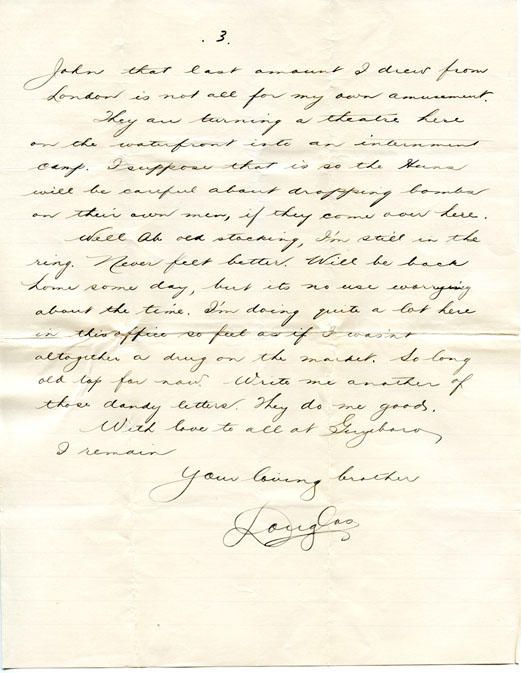 . 3.
John that last amount I drew from
London is not all for my own amusement.
They are turning a theatre here
on the waterfront into an internment
camp. I suppose that is so the Huns
will be careful about dropping bombs
on their own men, if they come over here.
Well Ab old stocking, I'm still in the
ring. Never felt better. Will be back
home some day, but its no use worrying
about the time. I'm doing quite a lot here
in this office so feel as if I wasn't
altogether a drug on the market. So long
old top for now. Write me another of
those dandy letters. They do me good.
With love to all at Guysboro
I remain
Your loving brother
Douglas